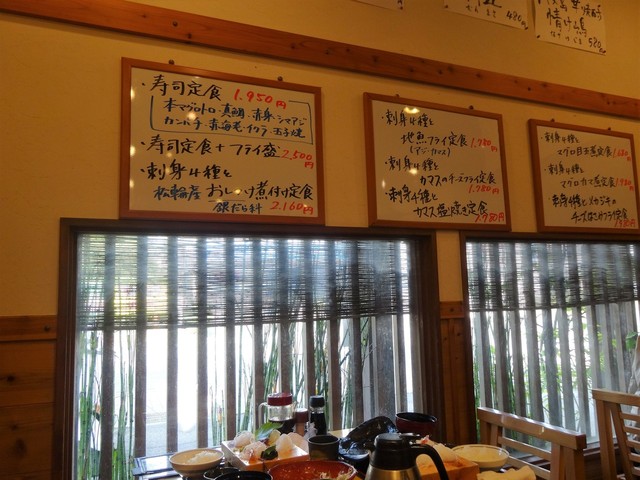 480円
580円
・寿司定食 1.950円
本マグロトロ・真鯛・赤身・シマアジ
カンパチ・赤海老・イクラ・玉子焼
・寿司定食+フライ盛 2,500円
・刺身4種と
松輪産 おしつけ煮付け定食
銀だら科 2.160円
・刺身4種と
地魚フライ定食 1,780円
(アジ・カマス)
・刺身4種と
カマスのチーズフライ定食
1.980円
・刺身4種と
カマス塩焼き定食
1,980円
・刺身4種と
マグロ目玉煮定食
・刺身4種と
マグロカマ煮定食
・刺身4種とメカジキの